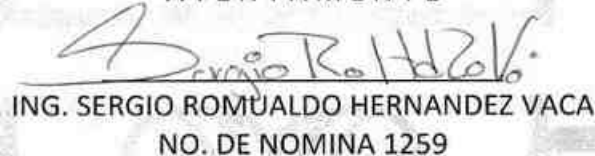 ING. SERGIO ROMUALDO HERNANDEZ VACA
NO. DE NOMINA 1259